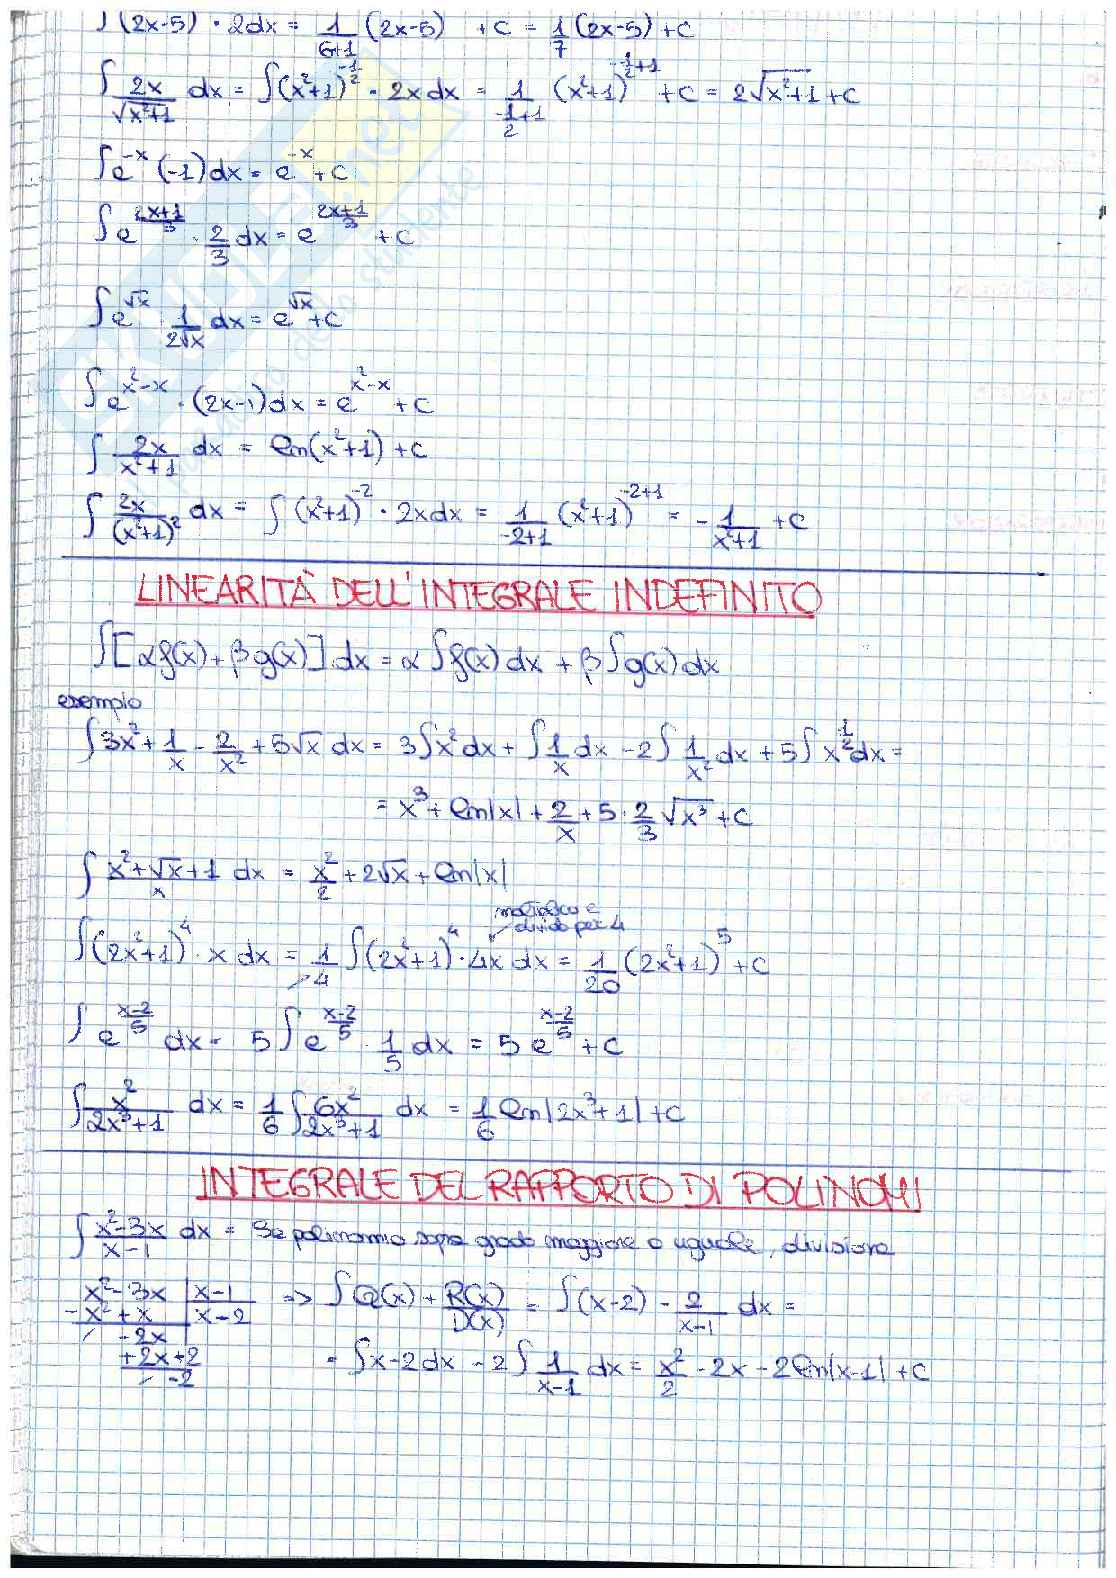 ∫(2x-5) · 2dx = 1/(6+1) (2x-5) + c = 1/7 (2x-5) + c
∫ 2x/√(x²+1) dx = ∫(x²+1)^(-1/2) · 2x dx = 1/(-1/2+1) (x²+1)^(-1/2+1) + c = 2√(x²+1) + c
∫e^(-x) (-1)dx = e^(-x) + c
∫e^((2x+1)/3) · 2/3 dx = e^((2x+1)/3) + c
∫e^(√x) 1/(2√x) dx = e^(√x) + c
∫e^(x²-x) · (2x-1)dx = e^(x²-x) + c
∫ 2x/(x²+1) dx = ln(x²+1) + c
∫ 2x/(x²+1)² dx = ∫(x²+1)^(-2) · 2x dx = 1/(-2+1) (x²+1)^(-2+1) = - 1/(x²+1) + c
LINEARITÀ DELL'INTEGRALE INDEFINITO
∫[αf(x) + βg(x)] dx = α∫f(x)dx + β∫g(x)dx
esempio
∫3x² + 1/x - 2/x² + 5√x dx = 3∫x²dx + ∫1/x dx - 2∫1/x² dx + 5∫x^(1/2) dx =
= x³ + ln|x| + 2/x + 5 · 2/3 √x³ + c
∫ (x²+√x+1)/x dx = x²/2 + 2√x + ln|x|
moltiplico e
divido per 4
∫(2x²+1)⁴ · x dx = 1/4 ∫(2x²+1)⁴ · 4x dx = 1/20 (2x²+1)⁵ + c
∫ e^((x-2)/5) dx = 5∫e^((x-2)/5) · 1/5 dx = 5e^((x-2)/5) + c
∫ x²/(2x³+1) dx = 1/6 ∫ 6x²/(2x³+1) dx = 1/6 ln|2x³+1| + c
INTEGRALE DEL RAPPORTO DI POLINOMI
∫ (x²-3x)/(x-1) dx = Se polinomio sopra grado maggiore o uguale, divisione
x²-3x | x-1 => ∫Q(x) + R(x)/D(x) = ∫(x-2) - 2/(x-1) dx =
-x²+x | x-2
-2x
+2x+2
-2
= ∫x-2dx - 2∫ 1/(x-1) dx = x²/2 - 2x - 2ln|x-1| + c